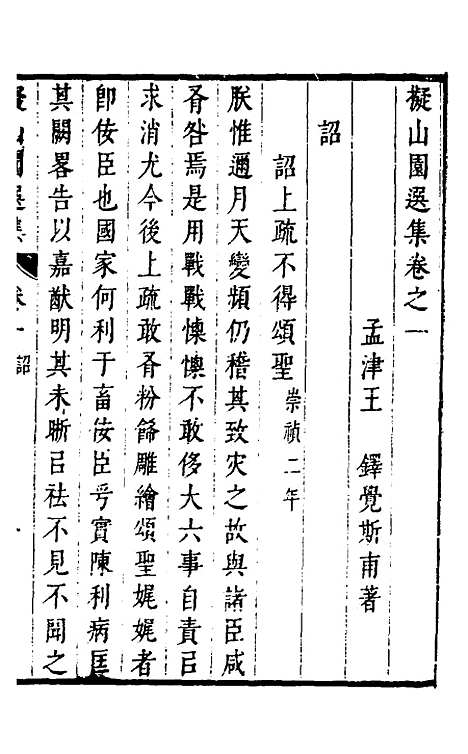 擬山園選集卷之一
孟津王　鐸覺斯甫著
詔
詔上疏不得頌聖崇禎二年
朕惟邇月天變頻仍稽其致灾之故與諸臣咸
胥咎焉是用戰戰慄慄不敢侈大六事自責㠯
求消尤今後上疏敢胥粉餙雕繪頌聖娓娓者
卽佞臣也國家何利于畜佞臣乎實陳利病匡
其闕畧告以嘉猷明其未晰㠯祛不見不聞之
擬山園選集　卷一　詔